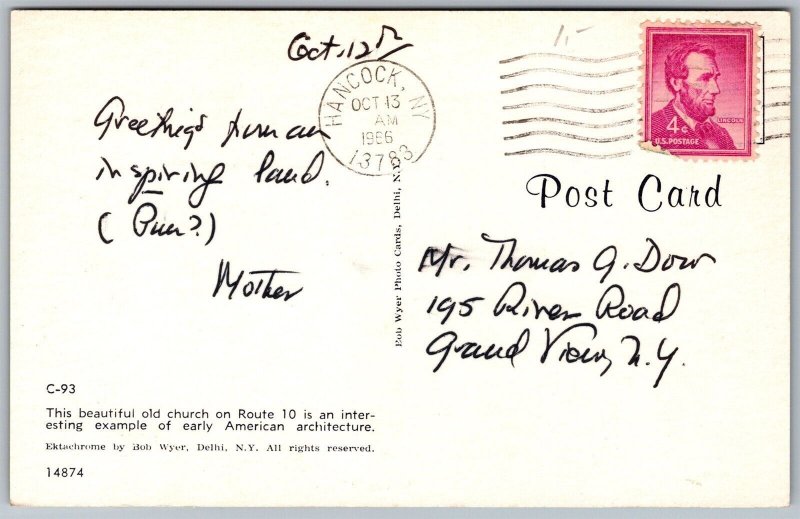 Oct. 12th
HANCOCK, NY
OCT 13
AM
1966
13783
4¢
LINCOLN
U.S. POSTAGE
Greetings from an
inspiring land.
(Pun?)
Mother
Post Card
Mr. Thomas G. Dow
195 River Road
Grand View, N.Y.
Bob Wyer Photo Cards, Delhi, N.
C-93
This beautiful old church on Route 10 is an inter-
esting example of early American architecture.
Ektachrome by Bob Wyer, Delhi, N.Y. All rights reserved.
14874